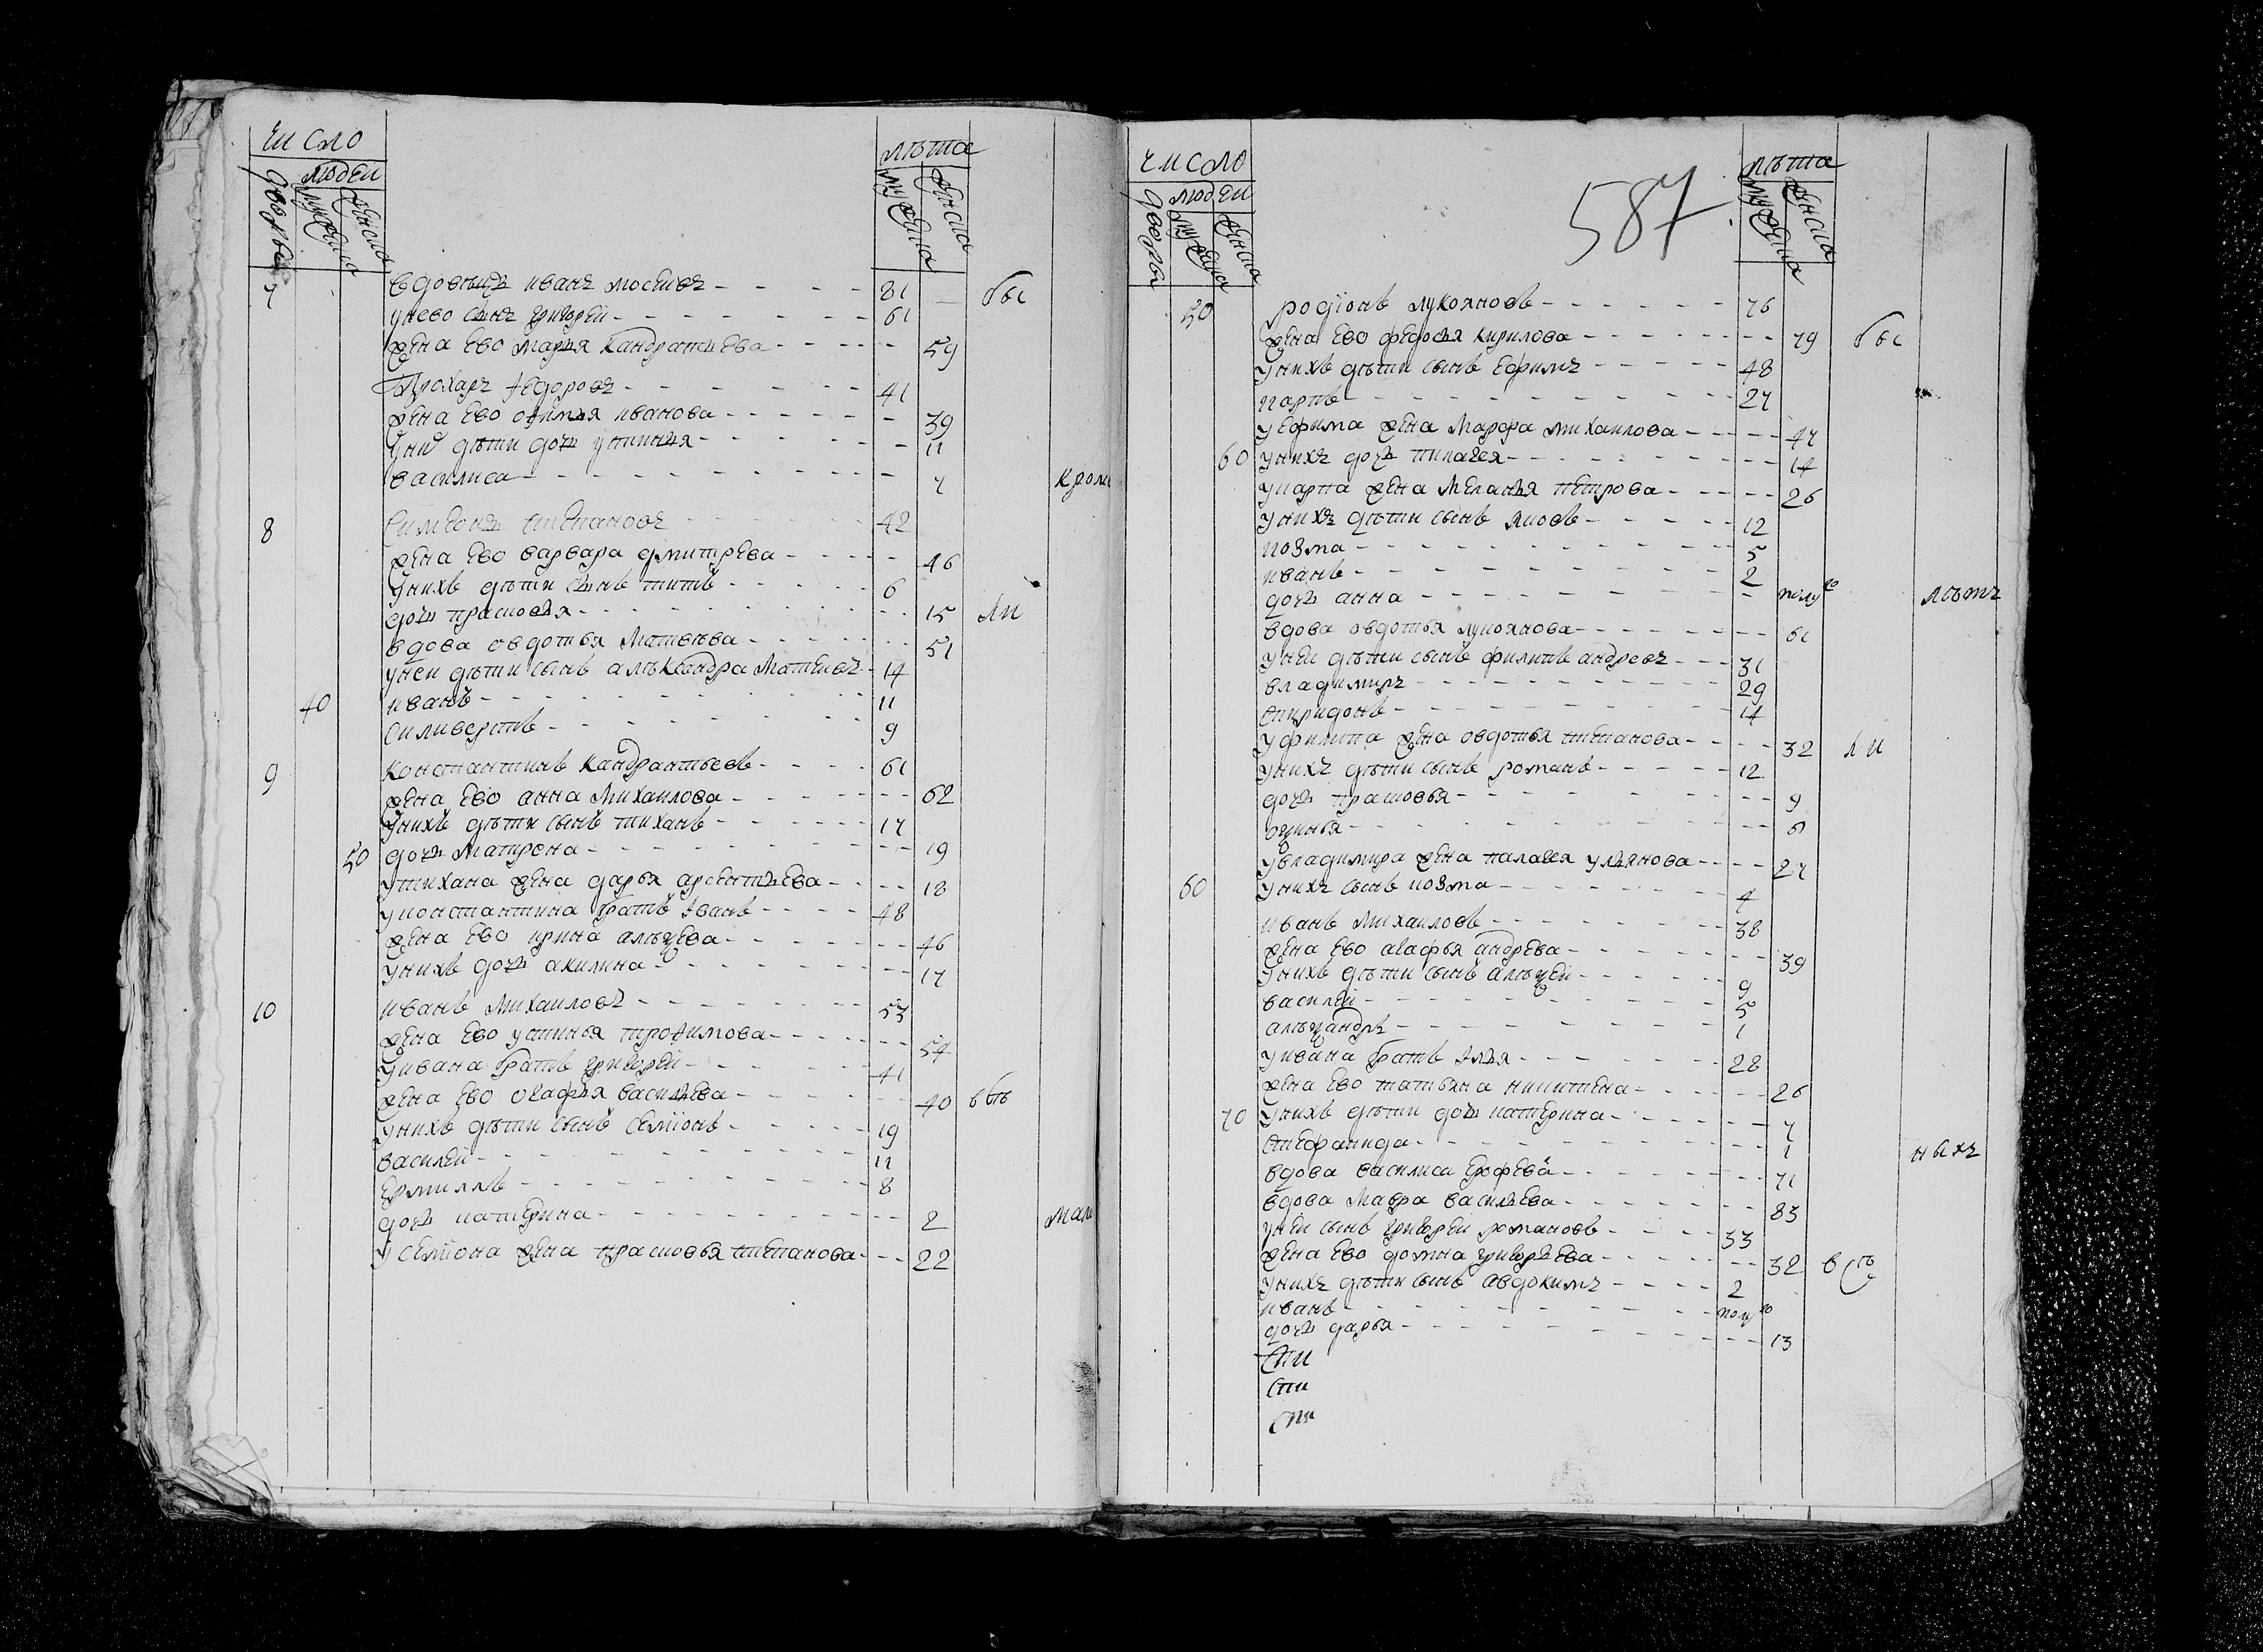 число
людеи
дворы
мужеска
женска
лѣта
мужеска
женска
7 вдовецъ иванъ мосеивъ 81 бы
унево сынъ григореи 61
жена ево марья кандратиева 59
Прохаръ федоровъ 41
жена ево офимья иванова 39
уних дѣти дочь устинья 11
василиса 7 кроми
8 Симеонъ степановъ 42
жена ево варвара дмитрева 46
унихъ дѣти сынъ титъ 6
дочь прасковья 15 ли
вдова овдотья Матвѣва 51
унеи дѣти сынъ алѣксандра Матвеивъ 14
40 иванъ 11
Силиверстъ 9
9 Константинъ Кандратьевъ 61
жена ево анна Михаилова 62
унихъ дѣти сынъ тиханъ 17
50 дочь Матрена 19
утихана жена дарья арсентьева 18
уконстантина братъ Iванъ 48
жена ево ирина алѣксева 46
унихъ дочь акилина 17
10 иванъ Михаиловъ 53
жена ево устинья трофимова 54
уивана братъ григореи 41
жена ево огафья васильева 40 въ
унихъ дѣти сынъ Семiонъ 19
василеи 11
ермилъ 8
дочь катерина 2
усемiона жена прасковья степанова 22
число
людеи
дворы
мужеска
женска
587
лѣта
мужеска
женска
50 родiонъ лукояновъ 76
жена ево федосья кирилова 79 бы
унихъ дѣти сынъ ефимъ 48
карпъ 27
уефима жена Марфа михаилова 47
60 унихъ дочь пилагея 14
укарпа жена Меланья петрова 26
унихъ дѣти сынъ яковъ 12
козма 5
иванъ 2
дочь анна полуго лѣтъ
вдова овдотья лукоянова 61
унеи дѣти сынъ филипъ андревъ 31
владимиръ 29
спиридонъ 14
уфилипа жена овдотья степанова 32 ли
унихъ дѣти сынъ романъ 12
дочь прасковья 9
6
увладимира жена палагея ульянова 27
60 унихъ сынъ козма 4
иванъ михаиловъ 38
жена ево агафья андрева 39
унихъ дѣти сынъ алѣксеи 9
василеи 5
алѣксандръ 1
уивана братъ Iлья 28
жена ево татьяна никитена 26
70 унихъ дѣти дочь катерина 7
Стефанида 1 ныхъ
вдова василиса ерофева 71
вдова мавра васильева 83
унеи сынъ григореи романовъ 33
жена ево домна григорьева 32
унихъ дѣти сынъ авдокимъ 2
иванъ полуго
дочь дарья 13